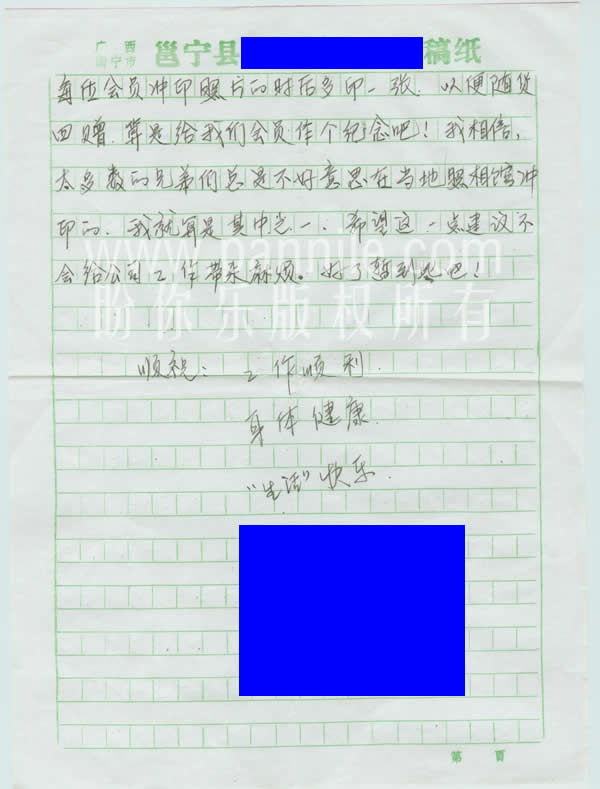 广西
南宁市 邕宁县 稿纸
每位会员冲印照片的时后多印一张. 以便随货
回赠. 算是给我们会员作个纪念吧! 我相信,
太多数的兄弟们总是不好意思在当地照相馆冲
印的. 我就算是其中之一. 希望这一点建议不
会给公司工作带来麻烦。好了暂到此吧!
www.pannile.com
盼你乐版权所有
顺祝: 工作顺利.
身体健康.
“生活”快乐.
第 页